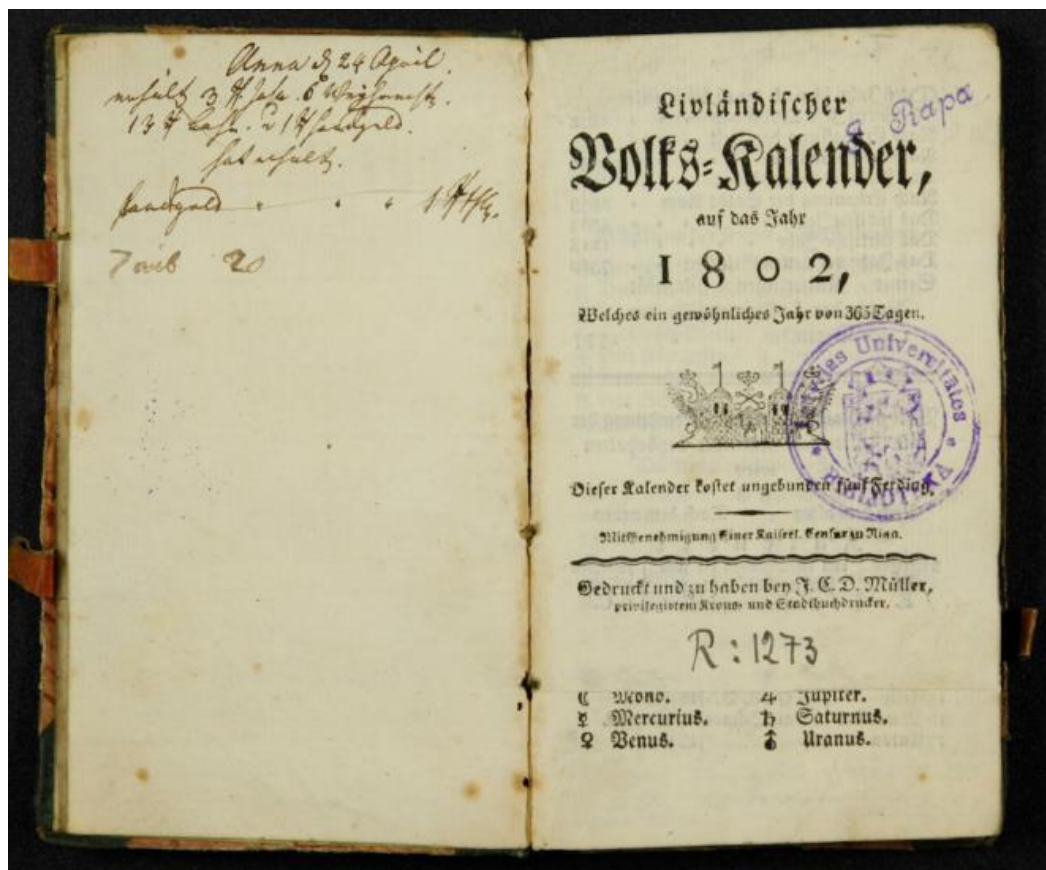 Anna d 24 April.
erhält 3
13
hat erhalt.
handgeld " " " 1
20
Livländischer
J Rapa
Volks-Kalender,
auf das Jahr
1802,
Welches ein gewöhnliches Jahr von 365 Tagen.
Universitates
Dieser Kalender kostet ungebunden fünf Ferding.
Mit Genehmigung Einer Kaiserl. Censur zu Riga.
Gedruckt und zu haben bey J. C. D. Müller,
privilegirtem Krons- und Stadtbuchdrucker.
R: 1273
☾ Mond. ♃ Jupiter.
☿ Mercurius. ♄ Saturnus.
♀ Venus. ⛢ Uranus.